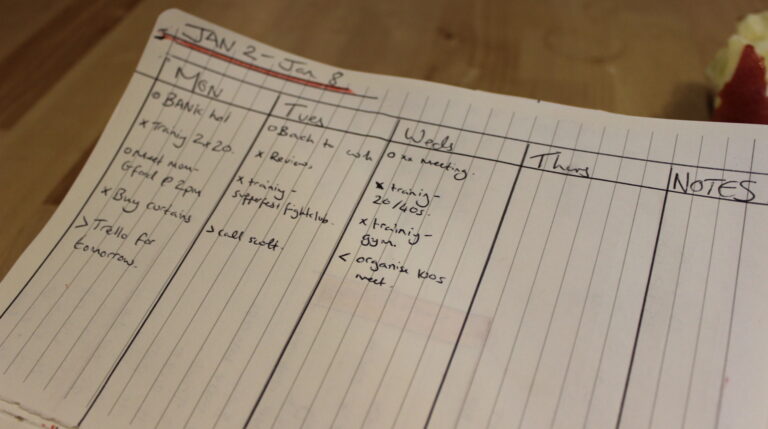 JAN 2 - Jan 8
MON
o BANK hol
x Training 2x20.
o Meet mum-
Gford @ 2pm
x Buy curtains
> Trello for
tomorrow.
Tues
o Back to work
x Review.
x training -
fightclub.
> call scott.
Weds
o meeting.
x training -
20/40s.
x training -
gym.
< organise
meet.
Thurs
NOTES